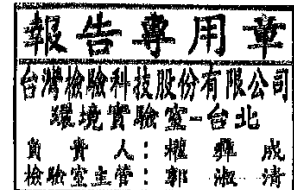 報告專用章
台灣檢驗科技股份有限公司
環境實驗室-台北
負責人：楊輝成
檢驗室主管：郭淑清